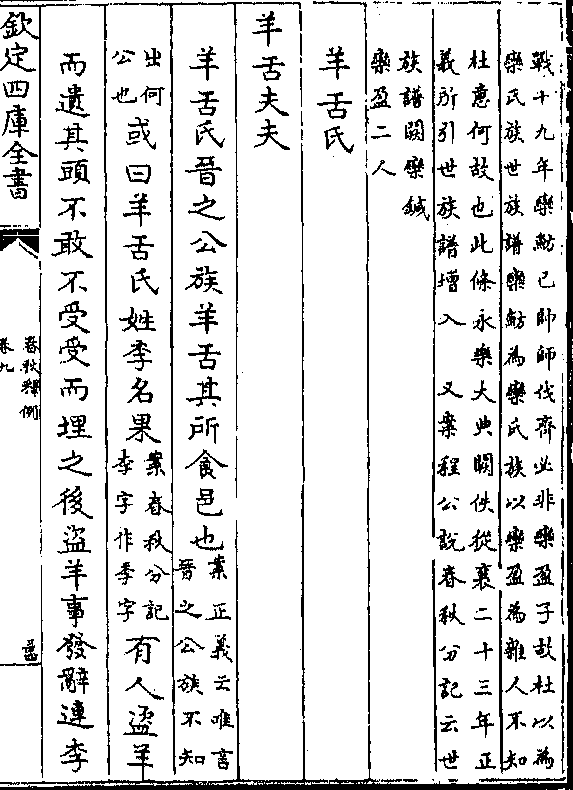 戰十九年欒魴已帥師伐齊必非欒盈子故杜以為
欒氏族世族譜欒魴為欒氏族以欒盈為雜人不知
杜意何故也此條永樂大典闕佚從襄二十三年正
義所引世族譜增入 又案程公說春秋分記云世
族譜闕欒鍼
欒盈二人
羊舌氏
羊舌夫夫
羊舌氏晉之公族羊舌其所食邑也案正義云唯言
晉之公族不知
出何
公也或曰羊舌氏姓李名果案春秋分記
李字作季字有人盜羊
而遺其頭不敢不受受而埋之後盜羊事發辭連李
欽定四庫全書
春秋釋例
卷九